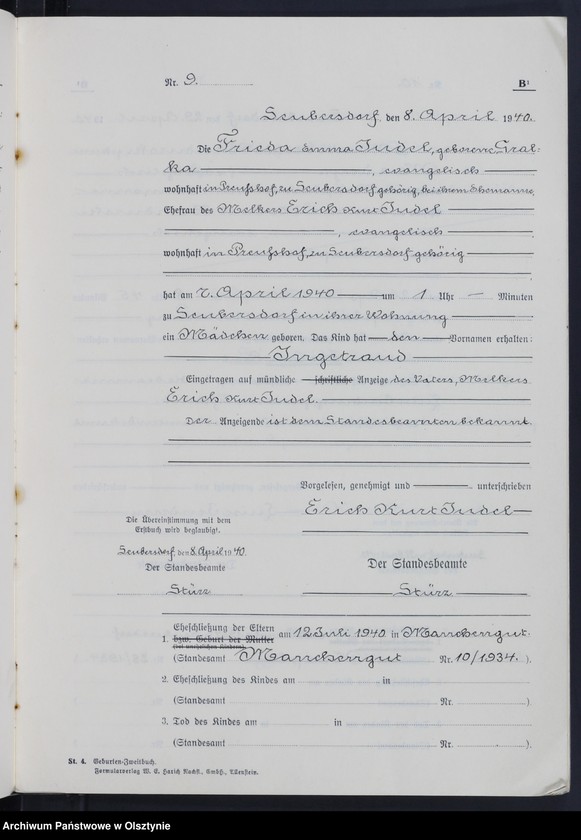 Nr. 9.
B¹
Seubersdorf den 8. April 1940.
Die Frieda Emma Judel, geborene Gral-
ka, evangelisch
wohnhaft in Preußhof, zu Seubersdorf gehörig, bei ihrem Ehemanne,
Ehefrau des Melkers Erich Kurt Judel
, evangelisch
wohnhaft in Preußhof, zu Seubersdorf gehörig
hat am 7. April 1940 um 1 Uhr — Minuten
zu Seubersdorf in ihrer Wohnung
ein Mädchen geboren. Das Kind hat den Vornamen erhalten:
Ingetraud
Eingetragen auf mündliche schriftliche Anzeige des Vaters, Melkers
Erich Kurt Judel.
Der Anzeigende ist dem Standesbeamten bekannt.
Vorgelesen, genehmigt und unterschrieben
Erich Kurt Judel
Die Übereinstimmung mit dem
Erstbuch wird beglaubigt.
Seubersdorf den 8. April 1940.
Der Standesbeamte
Stürz
Der Standesbeamte
Stürz
1. Eheschließung der Eltern
bzw. Geburt der Mutter
(bei unehelichen Kindern)
am 12 Juli 1940 in Manchengut.
(Standesamt Manchengut Nr. 10/1934.)
2. Eheschließung des Kindes am in
(Standesamt Nr. )
3. Tod des Kindes am in
(Standesamt Nr. )
St. 4. Geburten-Zweitbuch.
Formularverlag W. E. Harich Nachf., GmbH., Allenstein.
Archiwum Państwowe w Olsztynie